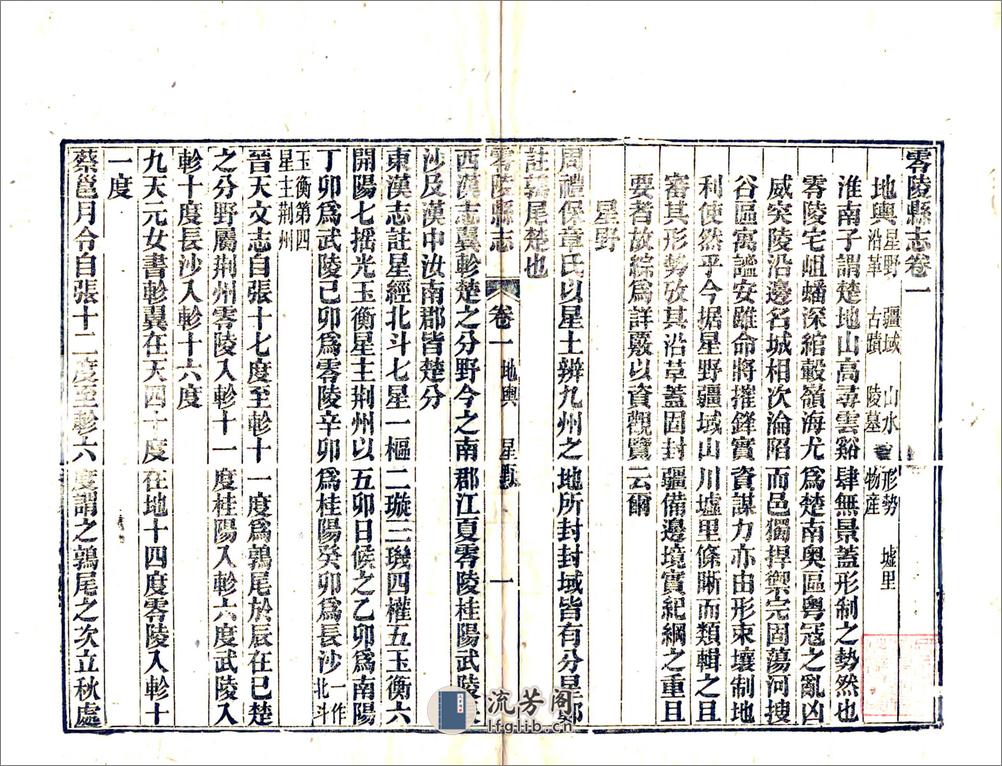 零陵縣志卷一
地輿 星野 疆域 山水 形勢 墟里
沿革 古蹟 陵墓 物産
淮南子謂楚地山高尋雲谿肆無景蓋形制之勢然也
零陵宅岨蟠深綰轂嶺海尤爲楚南奥區粤冠之亂凶
威突陵沿邊名城相次淪陷而邑獨捍禦完固蕩河搜
谷區寓謐安雖命將摧鋒實資謀力亦由形束壤制地
利使然乎今据星野疆域山川墟里條晰而類輯之且
審其形勢攷其沿革蓋固封疆備邊境實紀綱之重且
要者故綜爲詳覈以資觀覽云爾
星野
周禮保章氏以星土辨九州之地所封封域皆有分星鄭
註鶉尾楚也
零陵縣志 卷一 地輿 星野 一
西漢志翼軫楚之分野今之南郡江夏零陵桂陽武陵長
沙及漢中汝南郡皆楚分
東漢志註星經北斗七星一樞二璇三璣四權五玉衡六
開陽七摇光玉衡星主荆州以五卯日候之乙卯爲南陽
丁卯爲武陵己卯爲零陵辛卯爲桂陽癸卯爲長沙一作北斗
玉衡第四星主荆州
晉天文志自張十七度至軫十一度爲鶉尾於辰在巳楚
之分野屬荆州零陵入軫十一度桂陽入軫六度武陵入
軫十度長沙入軫十六度
九天元女書軫翼在天四十度在地十四度零陵入軫十
一度
蔡邕月令自張十二度至軫六度謂之鶉尾之次立秋處
流芳阁
lfglib.cn